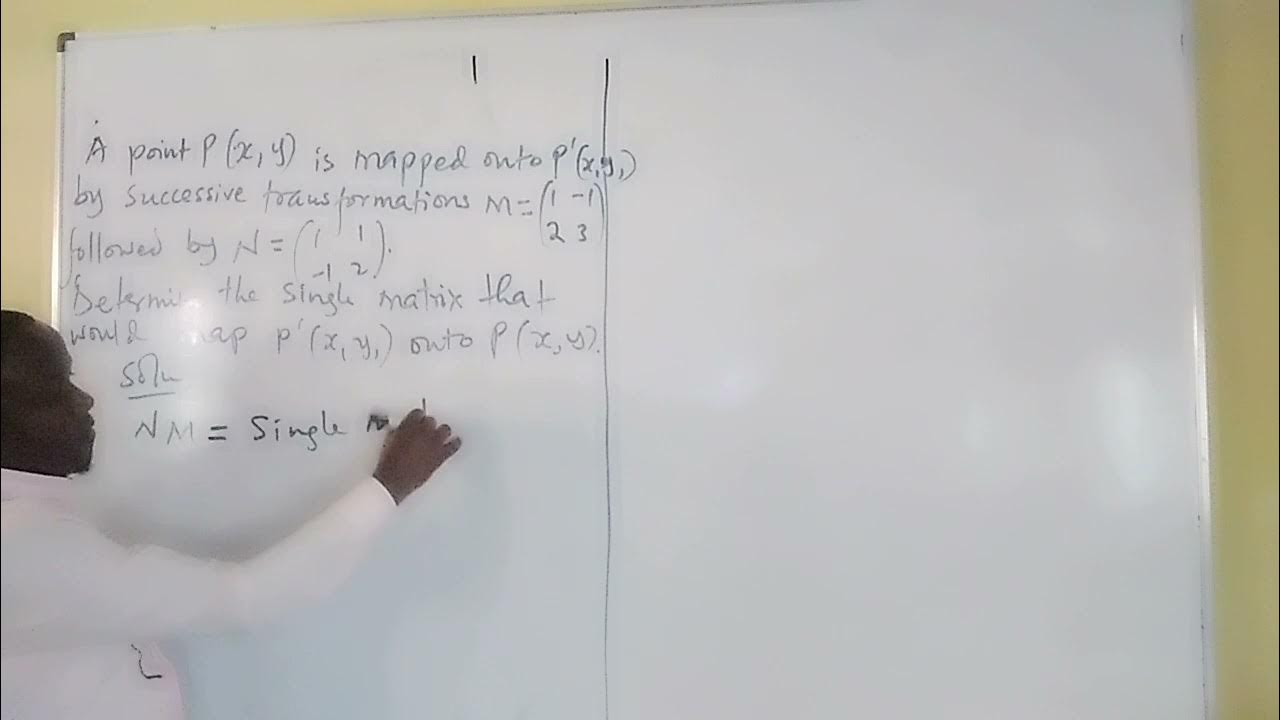 A point P(x, y) is mapped onto P'(x, y,)
by successive transformations M = (1 -1
2 3)
followed by N = (1 1
-1 2).
Determine the single matrix that
would map P'(x, y,) onto P(x, y).
Soln
NM = Single